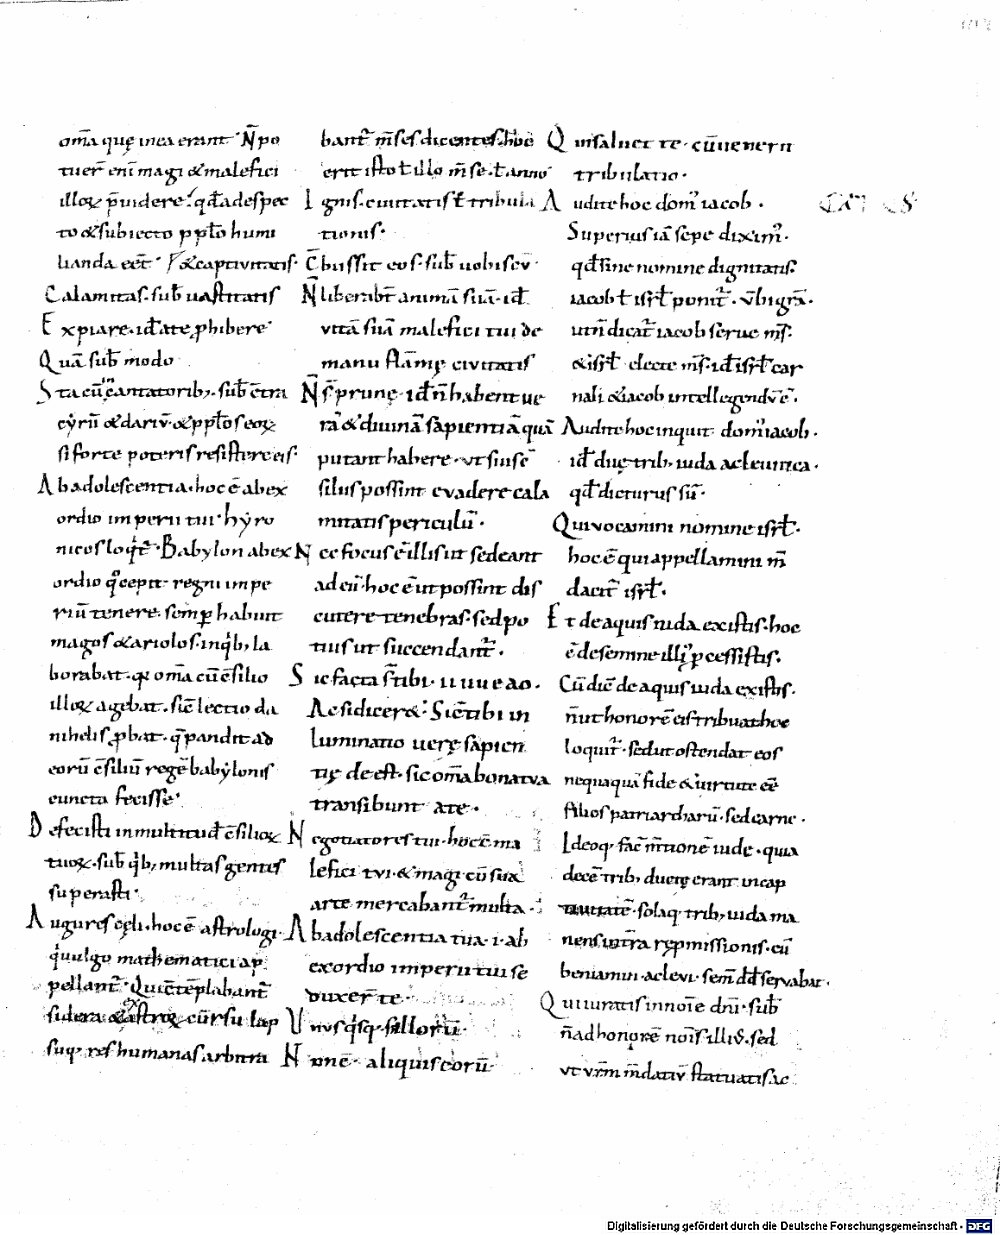 om̅a quę in ea erant · N̅ po
tuer̅ eni̅ magi & malefici
illoꝝ p̅uidere · qđ a despec
to & subiecto pp̅lo humi
lianda eet̅ · & captivitatis ·
Calamitas · sub̅ uastitatis
Expiare · id̅ a te ꝓhibere
Qua̅ sub̅ modo
Sta cu̅ incantatorib; · sub̅ c̅tra
cyru̅ & dariu̅ · & pp̅los eoꝝ
si forte poteris resistere eis ·
Ab adolescentia · hoc e̅ ab ex
ordio imperii tui · hyro
nicos loqͥt̅ · Babylon ab ex
ordio quo cepit regni impe
riu̅ tenere · semꝑ habuit
magos & ariolos · in qͥb; la
borabat · & om̅a cu̅ c̅silio
illoꝝ agebat · sic̅ lectio da
nihelis ꝓbat · q̅ pandit ad
eoru̅ c̅siliu̅ rege̅ babylonis
cuncta fecisse ·
Defecisti in multitud̅ c̅silioꝝ
tuoꝝ · sub̅ qͥb; multas gentes
superasti ·
Augures cęli · hoc e̅ astrologi ·
qͥ uulgo mathematici ap
pellant̅ · Qui c̅te̅plabant̅
sidera & astroꝝ cursu̅ lap
susq; res humanas arbitra
bant̅ m̅ses dicentes · hoc
erit isto ł illo m̅se · ł anno
Ignis · civitatis ł tribula
tionis ·
C̅bussit eos · sub̅ uobiscu̅ ·
N̅ liberabt̅ anima̅ sua̅ · id̅
vita̅ sua̅ malefici tui de
manu fla̅mę civitatis
N̅ s̅ prunę · id̅ n̅ habent ue
ra̅ & divina̅ sapientia̅ qua̅
putant habere · ut sin se̅
silus possint evadere cala
mitatis periculu̅ ·
Nec focus e̅ illis ut sedeant
ad eu̅ · hoc e̅ ut possint dis
cutere tenebras · sed po
tius ut succendant̅ ·
Sic facta s̅ tibi · u uu e a o ·
Ac si dicer& · Sic̅ tibi in
luminatio uerę sapien
tię deest · sic om̅a bona tua
transibunt a te ·
Negotiatores tui · hoc e̅ ma
lefici tui · & magi cu̅ sua
arte mercabant̅ multa ·
Ab adolescentia tua · i · ab
exordio imperii tui se
duxer̅ te ·
Unusqͥsq; s̅ illoru̅ ·
N̅ one̅ · aliquis coru̅ ·
Qui saluet te · cu̅ uenerit
tribulatio ·
Audite hoc dom̅ iacob ·
Superius ia̅ sepe dixim̅ ·
qđ sine nomine dignitatis ·
iacob ł isrł ponit̅ · v̅bi gra̅ ·
ut n̅ dicat̅ iacob serue m̅s ·
& isrł · electe m̅s · id̅ isrł car
nali & iacob intellegendu̅ e̅ ·
Audite hoc inquit · dom̅ iacob ·
id̅ duę trib; iuda ac leuitica ·
qđ dicturus su̅ ·
Qui vocamini nomine isrł ·
hoc e̅ qui appellamini m̅
dacit̅ isrł ·
Et de aquis iuda existis · hoc
e̅ de semine illiꝰ ꝓcessistis ·
Cu̅ dic̅ de aquis iuda existis ·
n̅ ut honore̅ eis tribuat hoc
loquit̅ · sed ut ostendat eos
nequaqua̅ fide & uirtute e̅e
filios patriarcharu̅ · sed carne ·
Ideoq; fac̅ m̅tione̅ iude · quia
dece̅ trib; ductę erant in cap
tiuitate̅ · solaq; trib; iuda ma
nens intra repmissionis · cu̅
beniamin ac levi · sem̅ dđ servabat ·
Qui iuratis in noi̅e dni̅ · sub̅
n̅ ad honore̅ nois̅ illiꝰ · sed
ut vr̅m m̅daciu̅ statuatis · ac